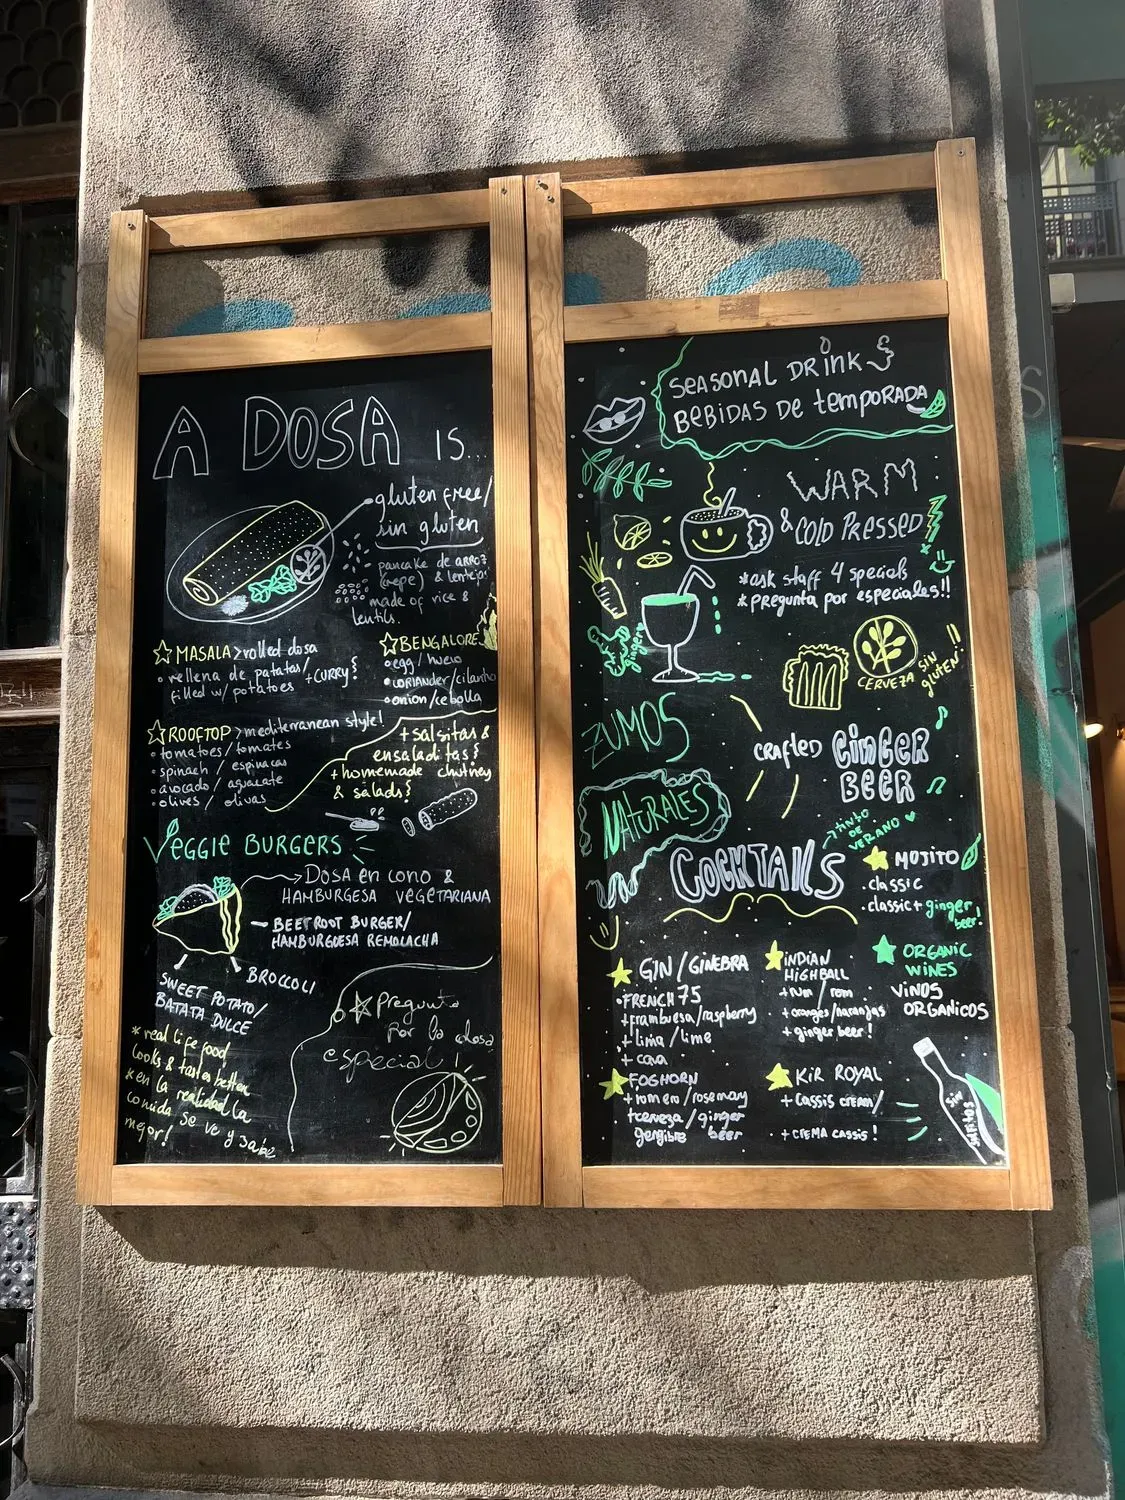 A DOSA IS...
gluten free/
sin gluten
pancake de arroz
(crepe) & lentejas
made of rice &
lentils.
MASALA > rolled dosa
• rellena de patatas/ + CURRY!
filled w/ potatoes
BENGALORE
• egg / huevo
• CORIANDER/cilantro
• onion/cebolla
ROOFTOP > mediterranean style!
• tomatoes / tomates
• spinach / espinacas
• avocado / aguacate
• olives / olivas
+ salsitas &
ensaladitas!
+ homemade chutney
& salads!
VEGGIE BURGERS
→ DOSA en cono &
HAMBURGESA VEGETARIANA
BEETROOT BURGER/
HAMBURGUESA REMOLACHA
BROCCOLI
SWEET POTATO/
BATATA DULCE
* real life food
looks & tastes better
* en la realidad la
comida se ve y sabe
mejor!
Pregunta
Por la dosa
especial!
SEASONAL DRINKS
BEBIDAS DE temporada
WARM
& COLD PRESSED
* ask staff 4 specials
* pregunta por especiales!!
ginger
CERVEZA
SIN
gluten
ZUMOS
NATURALES
CRAFTED GINGER
BEER
→ tinto
DE
VERANO
COCKTAILS
MOJITO
. classic
. classic + ginger
beer!
GIN / GINEBRA
• FRENCH 75
+ frambuesa/raspberry
+ lima / lime
+ cava
FOGHORN
+ romero / rosemary
+ cerveza / ginger
gengibre beer
INDIAN
HIGHBALL
+ rum / rom
+ oranges/naranjas
+ ginger beer!
KIR ROYAL
+ CASSIS CREAM/
+ CREMA CASSIS!
ORGANIC
WINES
VINOS
ORGANICOS
Sin